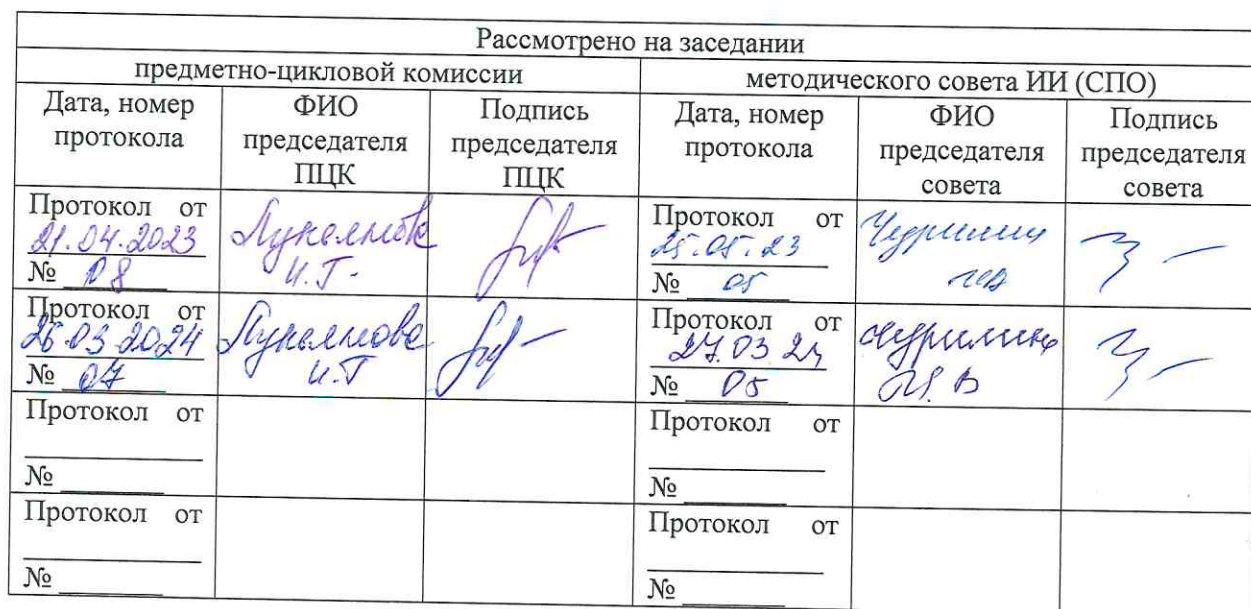 Рассмотрено на заседании
предметно-цикловой комиссии методического совета ИИ (СПО)
Дата, номер протокола ФИО председателя ПЦК Подпись председателя ПЦК Дата, номер протокола ФИО председателя совета Подпись председателя совета
Протокол от
21.04.2023
№ 08
И.Г.
Протокол от
25.05.23
№ 05
Протокол от
26.03.2024
№ 07
И.Г
Протокол от
27.03 24
№ 05
Протокол от
№
Протокол от
№
Протокол от
№
Протокол от
№